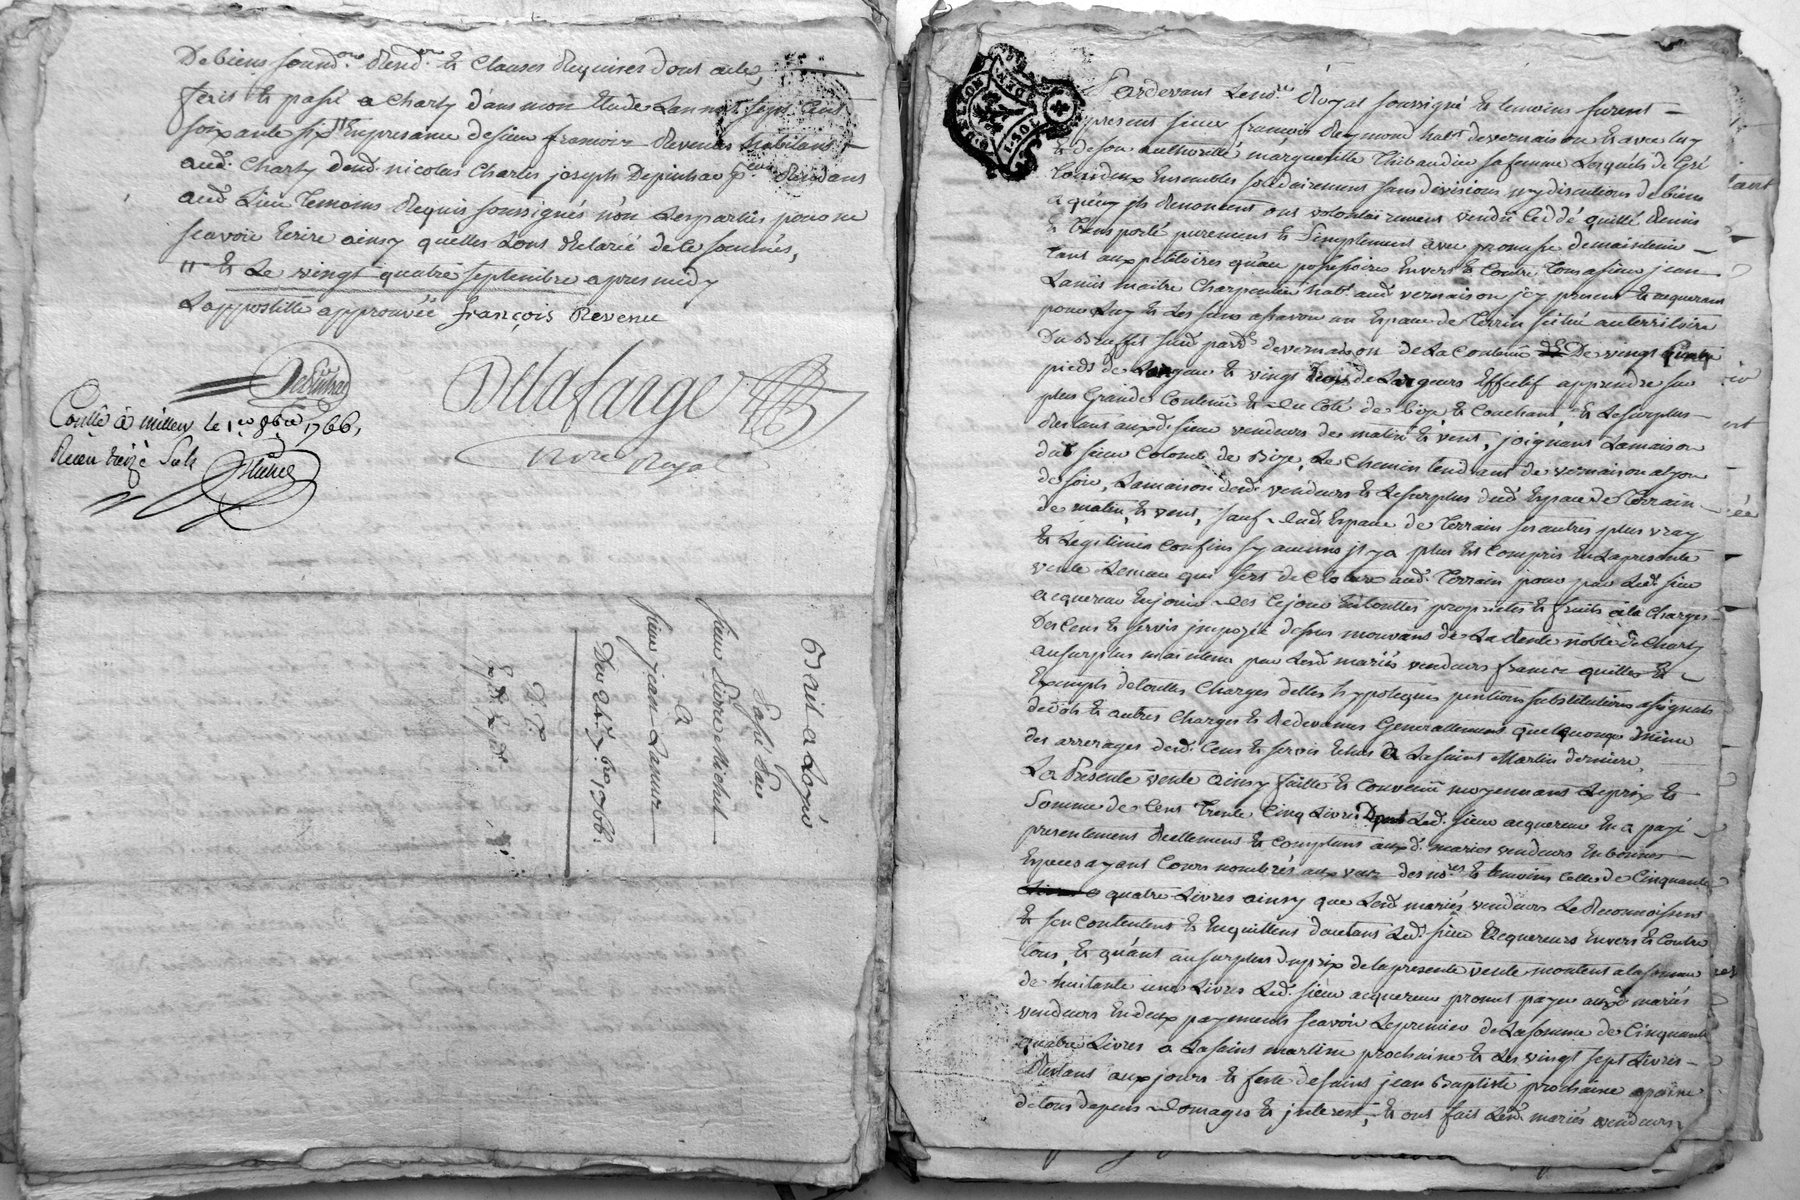 De biens soumd.ons Rend.on et Clauses Requises dont acte,
fait et passé a Charly dans mon Etude Lan mil sept Cent
soixante six 11 En presance de sieur francois Revenu habitant
aud. Charly de nicolas Charles joseph Depinhac Residans
aud. Lieu Temoins Requis soussignés non Les parties pour ne
scavoir Ecrire ainsy quelles Lont declaré de Ce sommés,
11 et Le vingt quatre septembre apres midy
Lappostille approuvée françois Revenu
Depinhac
Delafarge
Nore Royal
Conllé à millery le 1er 8bre 1766,
Reçu treize Sols
Bail a Loyer
Passé Par
sieur Pierre Michel
A
sieur jean Lamur
Du 24e 7bre 1766.
D. P.
Pardevant Lend. Royal soussigné et temoins furent
present sieur francois Reymond habt de vernaison et avec luy
et de son authorité marguerite Thibaudier sa femme Lesquels de Gré
tous deux Ensembles solidairement sans division ny discution de biens
a quoy ils Renoncent ont volontairement vendu Cedé quitté Remis
et transporté purement et simplement avec promesse de maintenir
tant aux petitoires qu'au possessoire Envers et Contre Tous a sieur jean
Lamur maitre Charpentier habt aud. vernaison icy present et acquerant
pour Luy et Les siens a scavoir un Espace de Terrin scitué au territoire
Du Buffet sud. parsse de vernaison de La Contenue De vingt
pieds de Longeur et vingt trois de Largeurs Effectif a prendre sur
plus Grande Contenue et du Coté de bize et Couchant et Le surplus
Restant auxd. sieur vendeurs de matin et vent, joignant La maison
dud sieur Colomb de Bize, Le Chemin tendant de vernaison a lyon
de soir, La maison desd. vendeurs et Le surplus dud Espace de Terrain
de matin et vent, sauf dud. Espace de Terrain ses autres plus vray
et Legitimes Confins sy aucuns il y a plus Est Compris En La presente
vente Le mur qui sert de Cloture aud. Terrain pour par Led. sieur
acquereur En jouir des Ce jour En touttes proprietés et fruits a la Charge
Des Cens et servis imposés dessus mouvans de La Rente noble de Charly
au surplus maintenu par Lesd. mariés vendeurs franc quitte et
Exempts de touttes Charges dettes hypoteques pentions substitutions assignats
de dots et autres Charges et Redevances Generallement quelquonque même
des arrerages desd. Cens et servis Echus a La saint Martin derniere,
La Presente vente ainsy faitte et Convenue moyennant Le prix et
Somme de Cent Trente Cinq Livres Dont Led. sieur acquereur En a payé
presentement Reellement et Comptant auxd. mariés vendeurs En bonnes
Especes ayant Cours nombrés aux vues des nores et temoins Celle de Cinquante
quatre Livres ainsy que Lesd. mariés vendeurs Le Reconnoissent
et sen Contentent et En quittent d'autant Led. sieur acquereurs Envers et Contre
tous, et quant au surplus du prix de la presente vente montent a la somme
de huitante une Livres Led. sieur acquereur promet payer auxd. mariés
vendeurs En deux payements scavoir Le premier de La somme de Cinquante
quatre Livres a La saint martin prochaine et Les vingt sept Livres
Restant aux jours et feste de saint jean Baptiste prochaine a peine
de tous depens domages et interest, et ont fait Lesd. mariés vendeurs